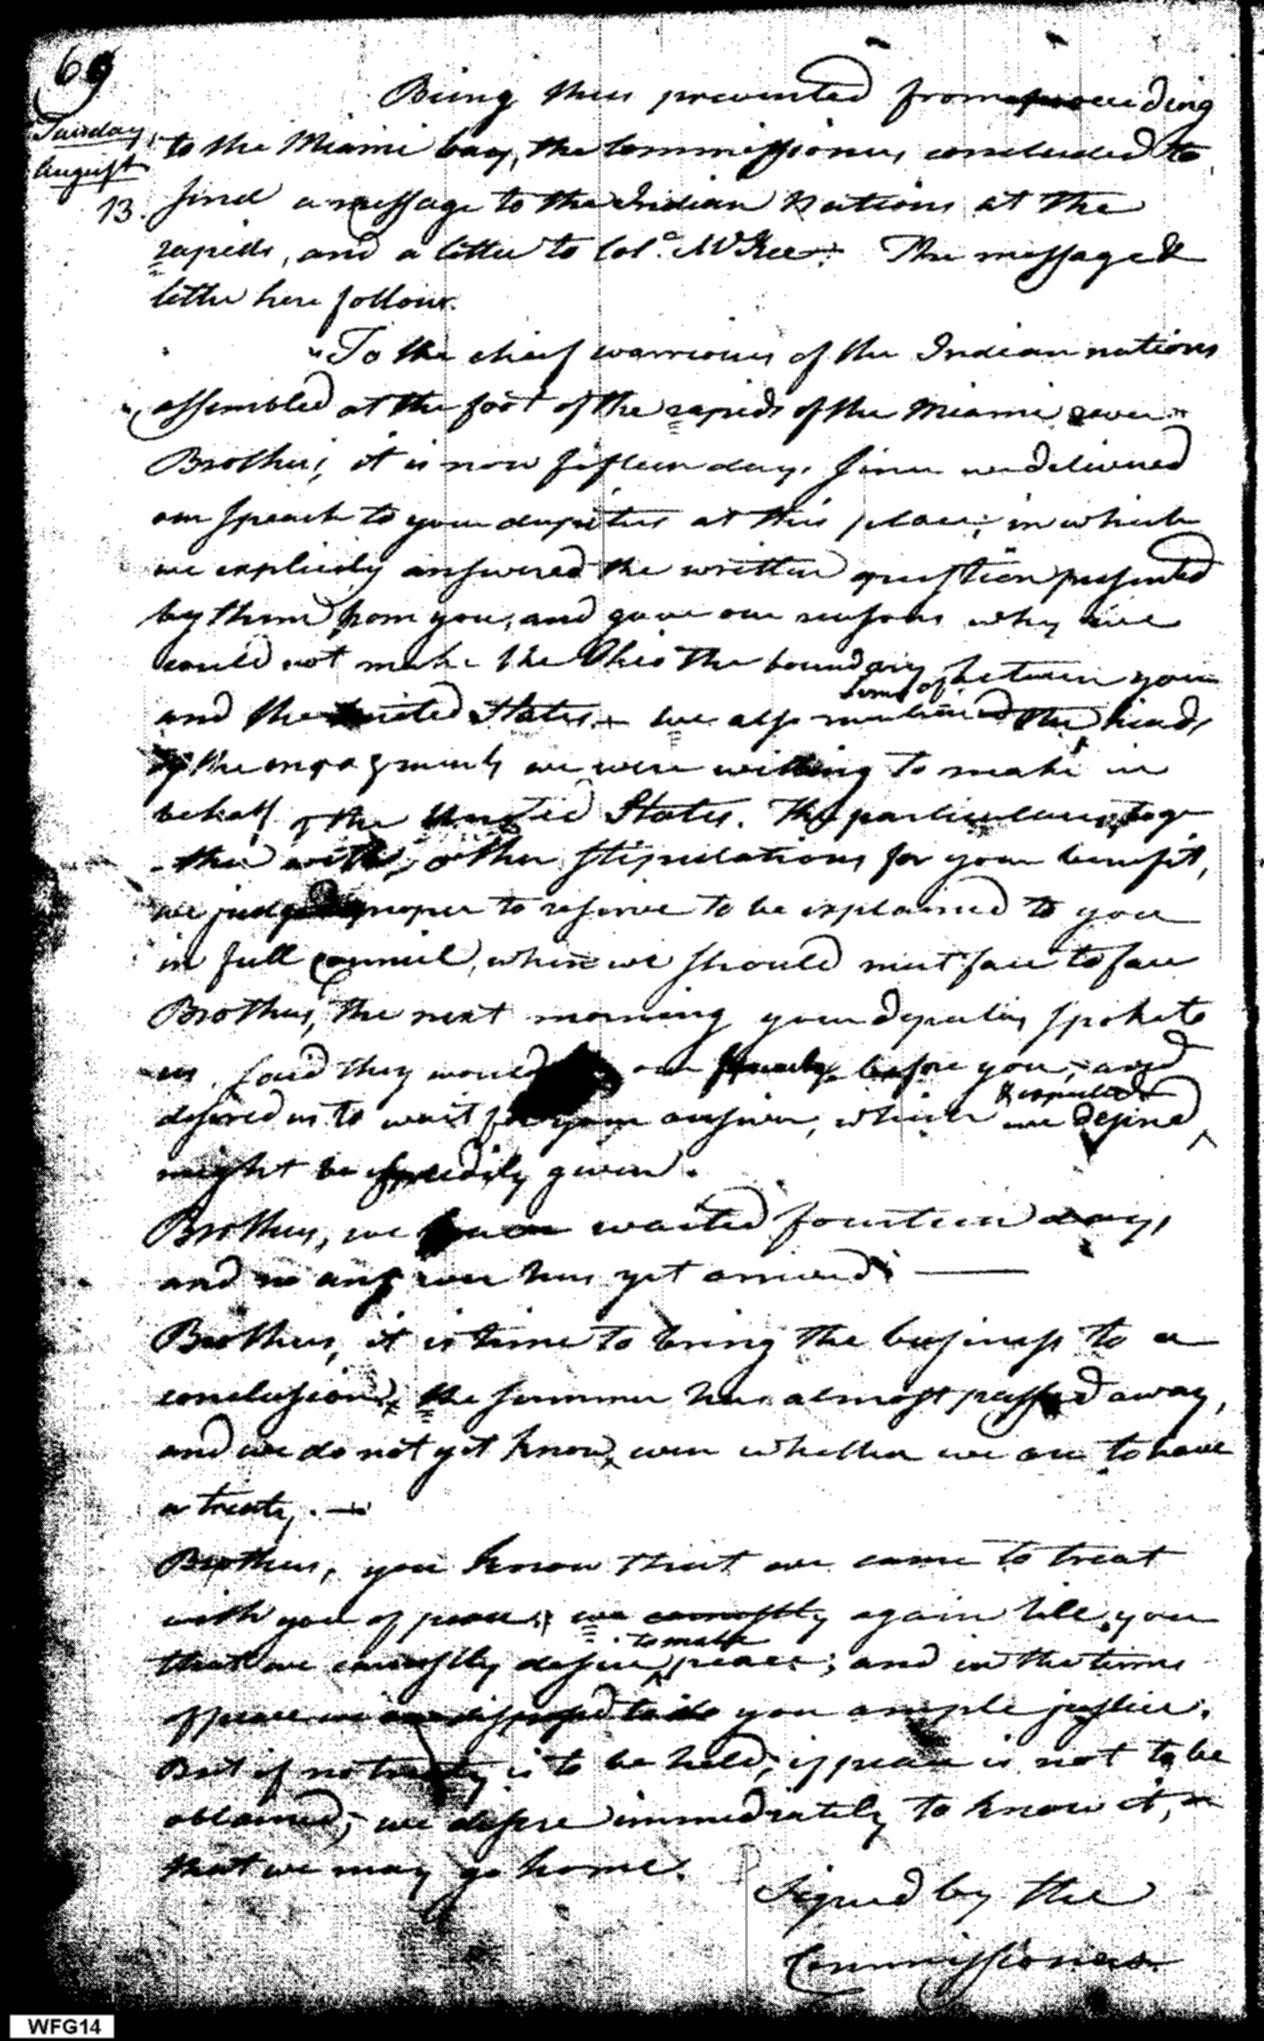 69
Being thus prevented from proceeding
Tuesday,
August
13.
to the Miami bay, the Commissioners concluded to
send a message to the Indian Nations at the
rapids, and a letter to Col.º McKee. The message &
letter here follow.
"To the chief warriours of the Indian nations
assembled at the foot of the rapids of the Miami river"
Brothers, it is now fifteen days since we delivered
our speech to your deputies at this place; in which
we explicitly answered the written question presented
by them from you, and gave our reasons why we
could not make the Ohio the boundary between you
some of
and the United States. We also mentioned the heads
of the engagements we were willing to make in
behalf of the United States. The particulars, toge
-ther with other stipulations for your benefit,
we judged proper to reserve to be explained to you
in full council, when we should meet face to face
Brothers, the next morning your deputies spoke to
us, said they would our speech before you, and
& expected
desired us to wait for your answer, which we desired
might be speedily given.
Brothers, we have waited fourteen days,
and no answer has yet arrived.
Brothers, it is time to bring the business to a
conclusion, the summer has almost passed away,
and we do not yet know even whether we are to have
a treaty. —
Brothers, you know that we came to treat
with you of peace; we earnestly again tell you
to make
that we earnestly desire peace; and in the terms
of peace we are disposed to do you ample justice.
But if no treaty is to be held, if peace is not to be
obtained, we desire immediately to know it,
that we may go home.
Signed by the
Commissioners.
WFG14